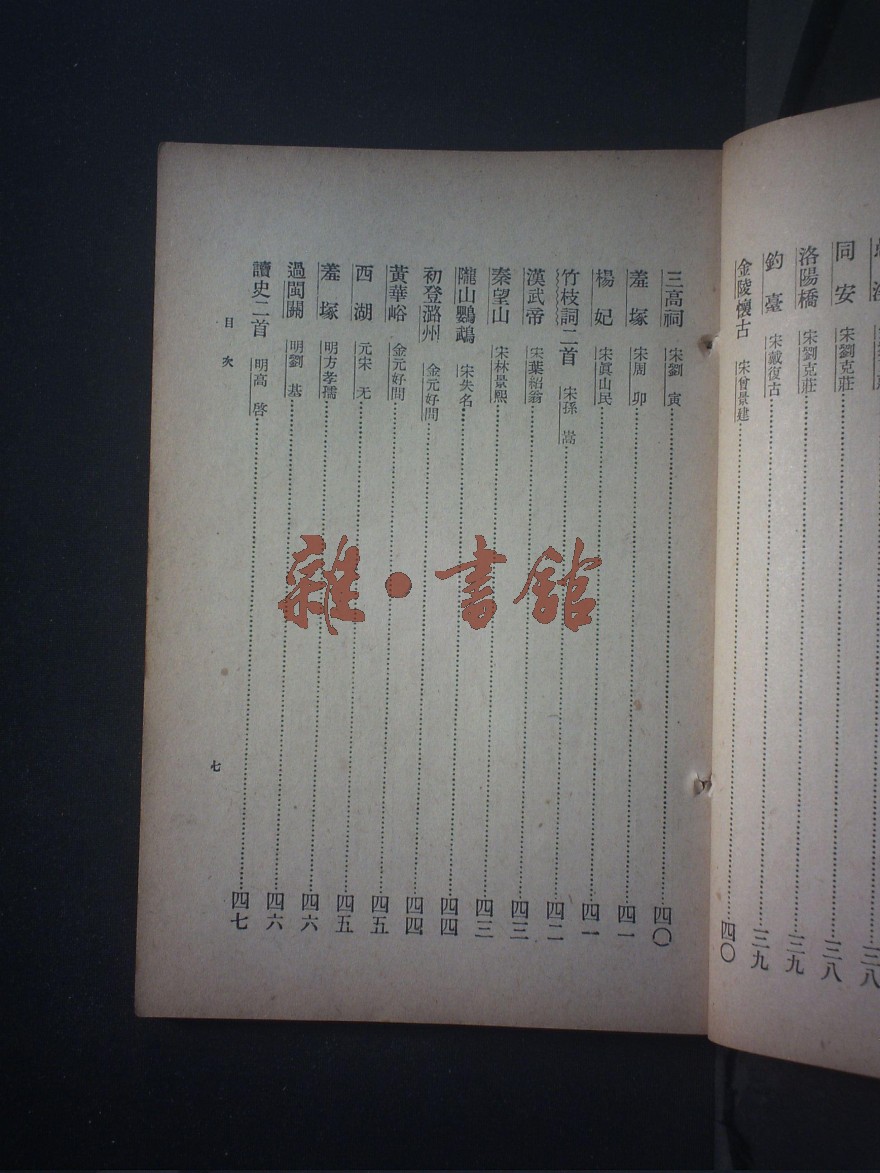 同安 宋劉克莊 三八
洛陽橋 宋劉克莊 三九
釣臺 宋戴復古 三九
金陵懷古 宋曾景建 四〇
三高祠 宋劉寅 四〇
羞塚 宋周卯 四一
楊妃 宋眞山民 四一
竹枝詞二首 宋孫嵩 四二
漢武帝 宋葉紹翁 四三
秦望山 宋林景熙 四三
隴山鸚鵡 宋失名 四四
初登潞州 金元好問 四四
黃華峪 金元好問 四五
西湖 元宋无 四五
羞塚 明方孝孺 四六
過閩關 明劉基 四六
讀史二首 明高啓 四七
目次
七
雜·書館